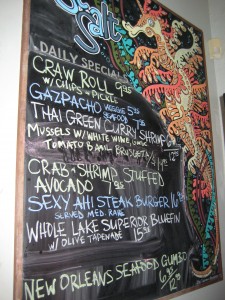 Sea Salt
DAILY SPECIALS
CRAW ROLL 9.95
W/ CHIPS + PICKLE
GAZPACHO VEGGIE 5.95
SEAFOOD 7.95
THAI GREEN CURRY SHRIMP
MUSSELS W/ WHITE WINE,
TOMATO BASIL BRUSCHETTA
12.95
CRAB + SHRIMP STUFFED
AVOCADO 7.95
SEXY AHI STEAK BURGER
SERVED MED. RARE
WHOLE LAKE SUPERIOR BLUEFIN
W/ OLIVE TAPENADE 15.95
NEW ORLEANS SEAFOOD GUMBO
12.95